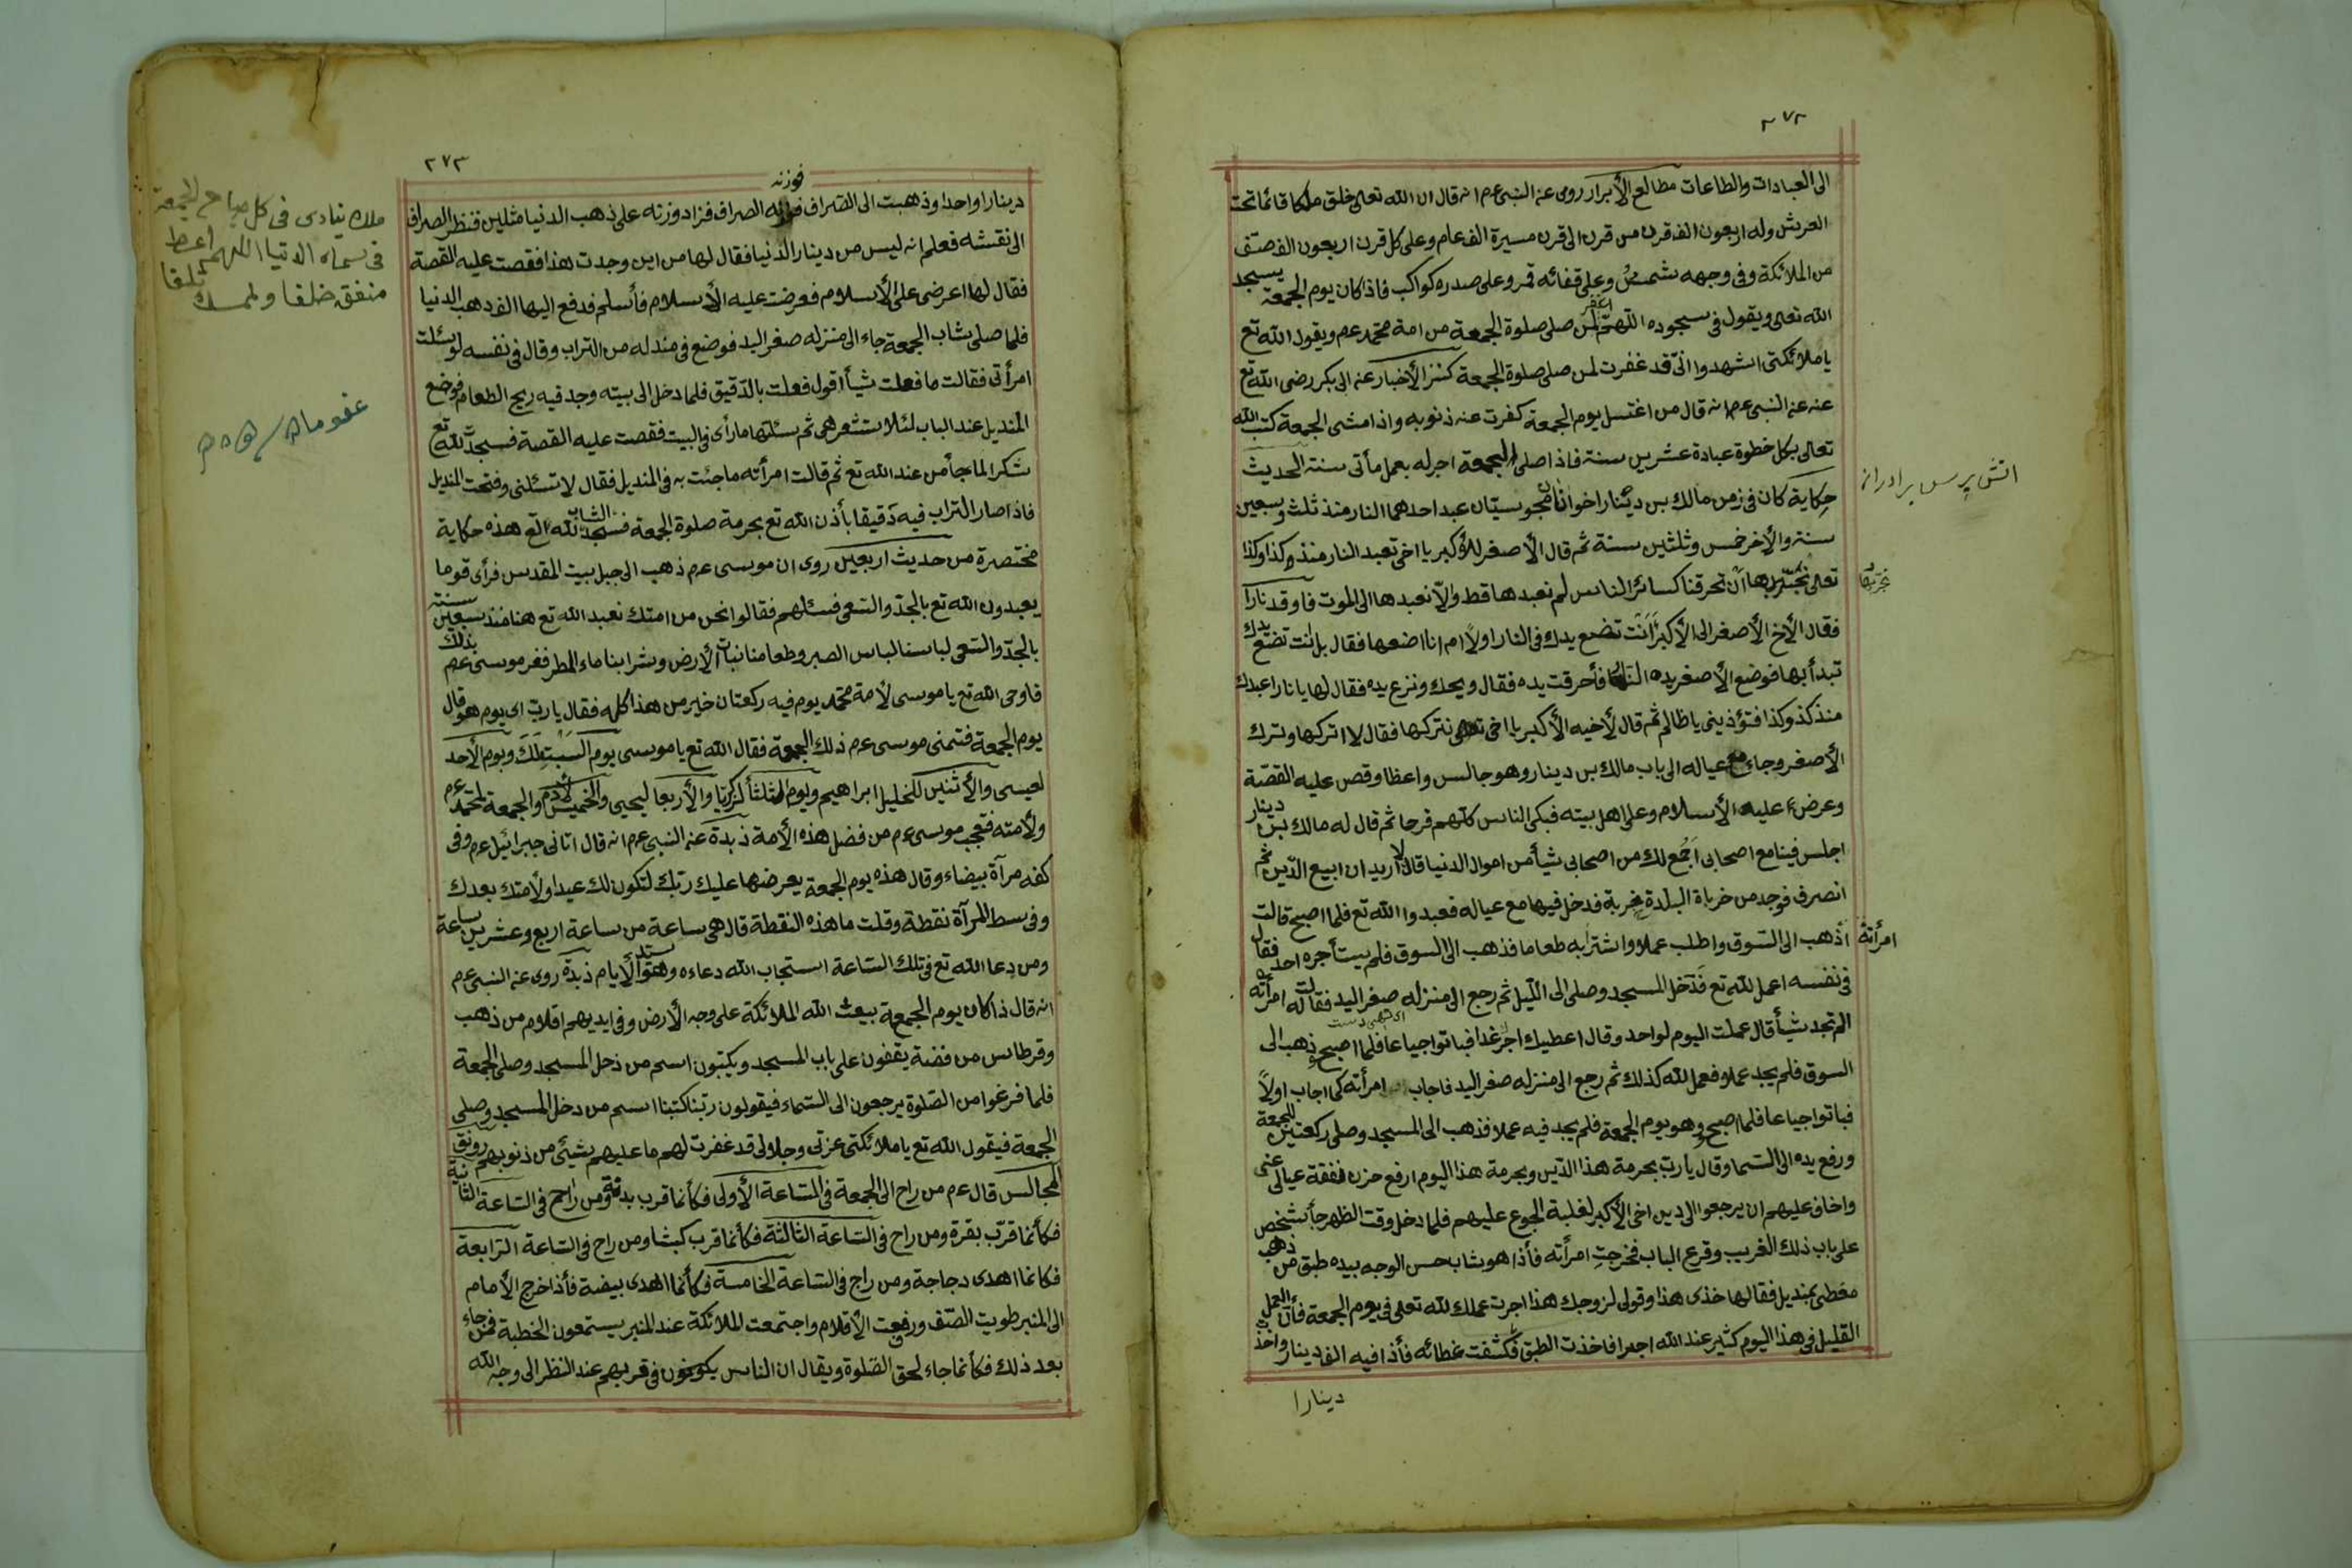 ٢٧٢
الى العبادات والطاعات مطالع الأبرار روى عنه النبى عم انه قال ان الله تعالى خلق ملكا قائما تحت
العرش وله اربعون الف قرن من قرن الى قرن مسيرة الف عام وعلى كل قرن اربعون الف صف
من الملائكة وفى وجهه شمس وعلى قفائه قمر وعلى صدره كواكب فاذا كان يوم الجمعة يسجد
الله تعالى ويقول فى سجوده اللهم اغفر لمن صلى صلوة الجمعة من امة محمد عم ويقول الله تع
يا ملائكتى اشهدوا انى قد غفرت لمن صلى صلوة الجمعة كنز الأخبار عنه ابى بكر رضى الله تع
عنه عنه النبى عم انه قال من اغتسل يوم الجمعة كفرت عنه ذنوبه واذا مشى الجمعة كتب الله
تعالى بكل خطوة عبادة عشرين سنة فاذا صلى الجمعة اجر له بعمل مأتى سنة الحديث
حكاية كان فى زمن مالك بن دينار اخوان مجوسيان عبد احدهما النار منذ ثلث وسبعين
اتش پرس برادرانه
سنة والأخر خمس وثلثين سنة ثم قال الأصغر للأكبر يا اخى تعبد النار منذ كذا وكذا
تعالى نجربها أن تحرقنا كسائر الناس لم نعبدها قط والا نعبدها الى الموت فاوقد نارا
فقال الأخ الأصغر الى الأكبر أأنت تضع يدك فى النار اولا ام انا اضعها فقال بل انت تضع يدك
تبدأ بها فوضع الأصغر يده النار فأحرقت يده فقال ويحك ونزع يده فقال لها يا نار اعبدك
منذ كذا وكذا فتؤذينى يا ظالم ثم قال لأخيه الأكبر يا اخى نتركها فقال لا اتركها وترك
الأصغر وجاء مع عياله الى باب مالك بن دينار وهو جالس واعظا وقص عليه القصة
وعرض عليه الأسلام وعلى اهل بيته فبكى الناس كلهم فرحا ثم قال له مالك بن دينار
اجلس فينا مع اصحابى اجمع لك من اصحابى شيأ من اموال الدنيا قال لا اريد ان ابيع الدين ثم
انصرف فوجد من خرباة البلدة خربة فدخل فيها مع عياله فعبدوا الله تع فلما اصبح قالت
امرأته اذهب الى السوق واطلب عملا واشترا به طعاما فذهب الى السوق فلم يستأجره احد فقال
فى نفسه اعمل لله تع فدخل المسجد وصلى الى الليل ثم رجع الى منزله صفر اليد فقالت له امرأته
الم تجد شيأ قال عملت اليوم لواحد وقال اعطيك اجر غدا فباتوا جياعا فلما اصبح ذهب الى
السوق فلم يجد عملا فعمل لله كذلك ثم رجع الى منزله صفر اليد فاجاب امرأته كما اجاب اولا
فباتوا جياعا فلما اصبح وهو يوم الجمعة فلم يجد فيه عملا فذهب الى المسجد وصلى ركعتين للجمعة
ورفع يده الى السما وقال يا رب بحرمة هذا الدين وبحرمة هذا اليوم ارفع حزن نفقة عيالى عنى
واخاف عليهم ان يرجعوا الى دين اخى الأكبر لغلبة الجوع عليهم فلما دخل وقت الظهر جأ شخص
على باب ذلك الغريب وقرع الباب فخرجت امرأته فأذا هو بشاب حسن الوجه بيده طبق من ذهب
مغطى بمنديل فقال لها خذى هذا وقولى لزوجك هذا اجرت عملك لله تعالى فى يوم الجمعة فأن العمل
القليل فى هذا اليوم كثير عند الله اجرا فاخذت الطبق فكشفت غطائه فأذا فيه الف دينار واخذ
دينارا
٢٧٣
دينارا واحدا وذهبت الى الصراف فوزنه الصراف فزاد وزنه على ذهب الدنيا مثلين فنظر الصراف
الى نقشه فعلم انه ليس من دينار الدنيا فقال لها من اين وجدت هذا فقصت عليه القصة
فقال لها اعرضى على الأسلام فعرضت عليه الأسلام فأسلم فدفع اليها الف ذهب الدنيا
فلما صلى شاب الجمعة جاء الى منزله صفر اليد فوضع فى منديله من التراب وقال فى نفسه لو سئلت
امرأتى فقالت ما فعلت شيأ اقول فعلت بالدقيق فلما دخل الى بيته وجد فيه ريح الطعام فوضع
المنديل عند الباب لئلا تشعر هى ثم سئلتها ما رأى فى البيت فقصت عليه القصة فسجد لله تع
شكرا لما جأ من عند الله تع ثم قالت امرأته ما جئت به فى المنديل فقال لا تسئلنى وفتحت المنديل
فاذا صار التراب فيه دقيقا بأذن الله تع بحرمة صلوة الجمعة فسجد الشاب لله تع هذه حكاية
مختصرة من حديث اربعين روى ان موسى عم ذهب الى جبل بيت المقدس فرأى قوما
يعبدون الله تع بالجد والسعى فسئلهم فقالوا نحن من امتك نعبد الله تع هنا منذ سبعين سنة
بالجد والسعى لباسنا لباس الصبر وطعامنا نبات الأرض وشرابنا ماء المطر ففر موسى عم بذلك
فاوحى الله تع يا موسى لأمة محمد يوم فيه ركعتان خير من هذا كله فقال يا رب اى يوم هو قال
يوم الجمعة فتمنى موسى عم ذلك الجمعة فقال الله تع يا موسى يوم السبت لك ويوم الأحد
لعيسى والأثنين للخليل ابراهيم ويوم الثلثأ لزكريا والأربعا ليحيى والخميس لأدم والجمعة لمحمد عم
ولأمته فتعجب موسى عم من فضل هذه الأمة زبدة عنه النبى عم انه قال اتانى جبرائيل عم وفى
كفه مرآة بيضاء وقال هذه يوم الجمعة يعرضها عليك ربك لتكون لك عيدا ولأمتك بعدك
وفى وسط المرآة نقطة وقلت ما هذه النقطة قال هى ساعة من ساعة اربع وعشرين ساعة
ومن دعا الله تع فى تلك الساعة استجاب الله دعاءه وهو سيد الأيام زبدة روى عنه النبى عم
انه قال ذا كان يوم الجمعة يبعث الله الملائكة على وجه الأرض وفى ايديهم اقلام من ذهب
وقرطاس من فضة يقفون على باب المسجد ويكتبون اسم من دخل المسجد وصلى الجمعة
فلما فرغوا من الصلوة يرجعون الى السماء فيقولون ربنا كتبنا اسم من دخل المسجد وصلى
الجمعة فيقول الله تع يا ملائكتى عزتى وجلالى قد غفرت لهم ما عليهم شيئ من ذنوبهم رونق
المجالس قال عم من راح الى الجمعة فى الساعة الأولى فكأنما قرب بدنة ومن راح فى الساعة الثانية
فكأنما قرب بقرة ومن راح فى الساعة الثالثة فكأنما قرب كبشا ومن راح فى الساعة الرابعة
فكانما اهدى دجاجة ومن راح فى الساعة الخامسة فكأنما اهدى بيضة فأذا خرج الأمام
الى المنبر طويت الصحف ورفعت الأقلام واجتمعت الملائكة عند المنبر يستمعون الخطبة فمن جاء
بعد ذلك فكأنما جاء لحق الصلوة ويقال ان الناس يكونون فى قربهم عند النظر الى وجه الله
ملك ينادى فى كل صباح الجمعة
فى سماء الدنيا اللهم اعط
منفق خلفا ولممسك تلفا